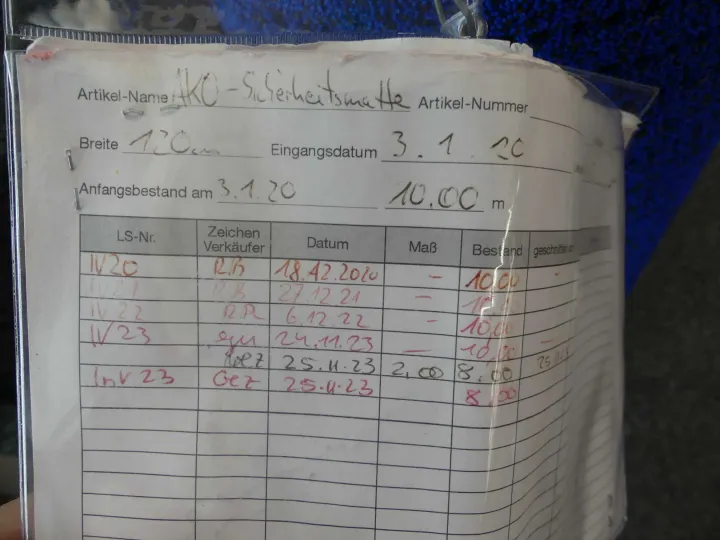 Artikel-Name AKO-Sicherheitsmatte Artikel-Nummer
Breite 120cm Eingangsdatum 3.1.20
Anfangsbestand am 3.1.20 10.00 m
LS-Nr. Zeichen Verkäufer Datum Maß Bestand geschnitten
IV 20 R.B 18.12.2020 – 10.00 -
R.B 27.12.21 –
IV 22 6.12.22 – 10.00
IV 23 24.11.23 — 10.00 –
25.11.23 2,00 8,00
Inv 23 Gez 25.11.23 8,00